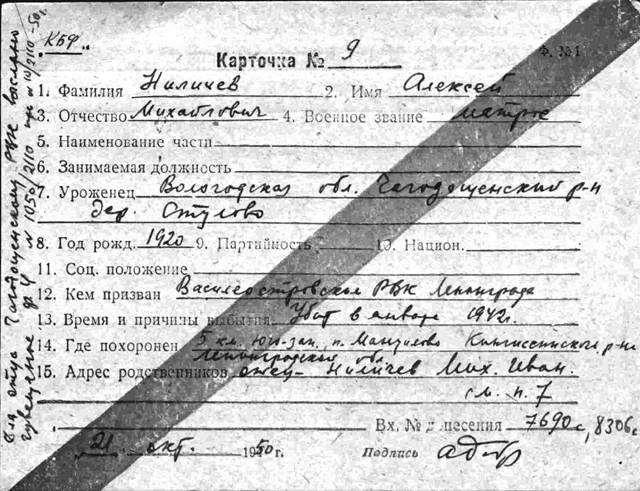 "КБФ"
Карточка № 9
Ф. №1
1. Фамилия Ниличев 2. Имя Алексей
3. Отчество Михайлович 4. Военное звание матрос
5. Наименование части
6. Занимаемая должность
7. Уроженец Вологодская обл. Чагодощенский р-н
дер. Стулово
8. Год рожд. 1920 9. Партийность 10. Национ.
11. Соц. положение
12. Кем призван Василеостровское РВК Ленинграда
13. Время и причины выбытия Убит в январе 1942г.
14. Где похоронен 5 км. юго-зап. п. Кингисеппского р-на
Ленинградской обл.
15. Адрес родственников отец - Ниличев Мих. Иван.
см. п. 7
Вх. № донесения 7690с, 8306с
21 окт. 1950г. Подпись
Для отца Чагодощенскому РВК выслано
извещение ф. 4